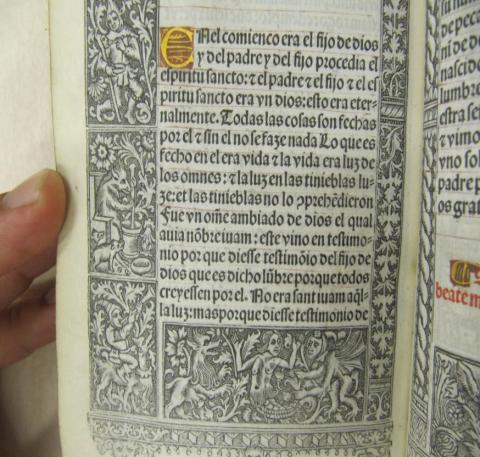 En el comienco era el fijo de dios
y del padre y del fijo procedia el
espiritu sancto: ⁊ el padre ⁊ el fijo ⁊ el es
piritu sancto era vn dios: esto era eter-
nalmente. Todas las cosas son fechas
por el ⁊ sin el no se faze nada Lo que es
fecho en el era vida ⁊ la vida era luz de
los omnes: ⁊ la luz en las tinieblas lu-
ze: et las tinieblas no lo ꝯprehēdieron
Fue vn om̄e ambiado de dios el qual
auia nōbre iuam: este vino en testimo-
nio por que diesse testimōio del fijo de
dios que es dicho lūbre porque todos
creyessen por el. No era sant iuam aq̄l-
la luz: mas porque diesse testimonio de
su nas
de peca
ni de d
nascid
lumbre
estra se
⁊ vimo
vno sol
padre p
os grat
beate m